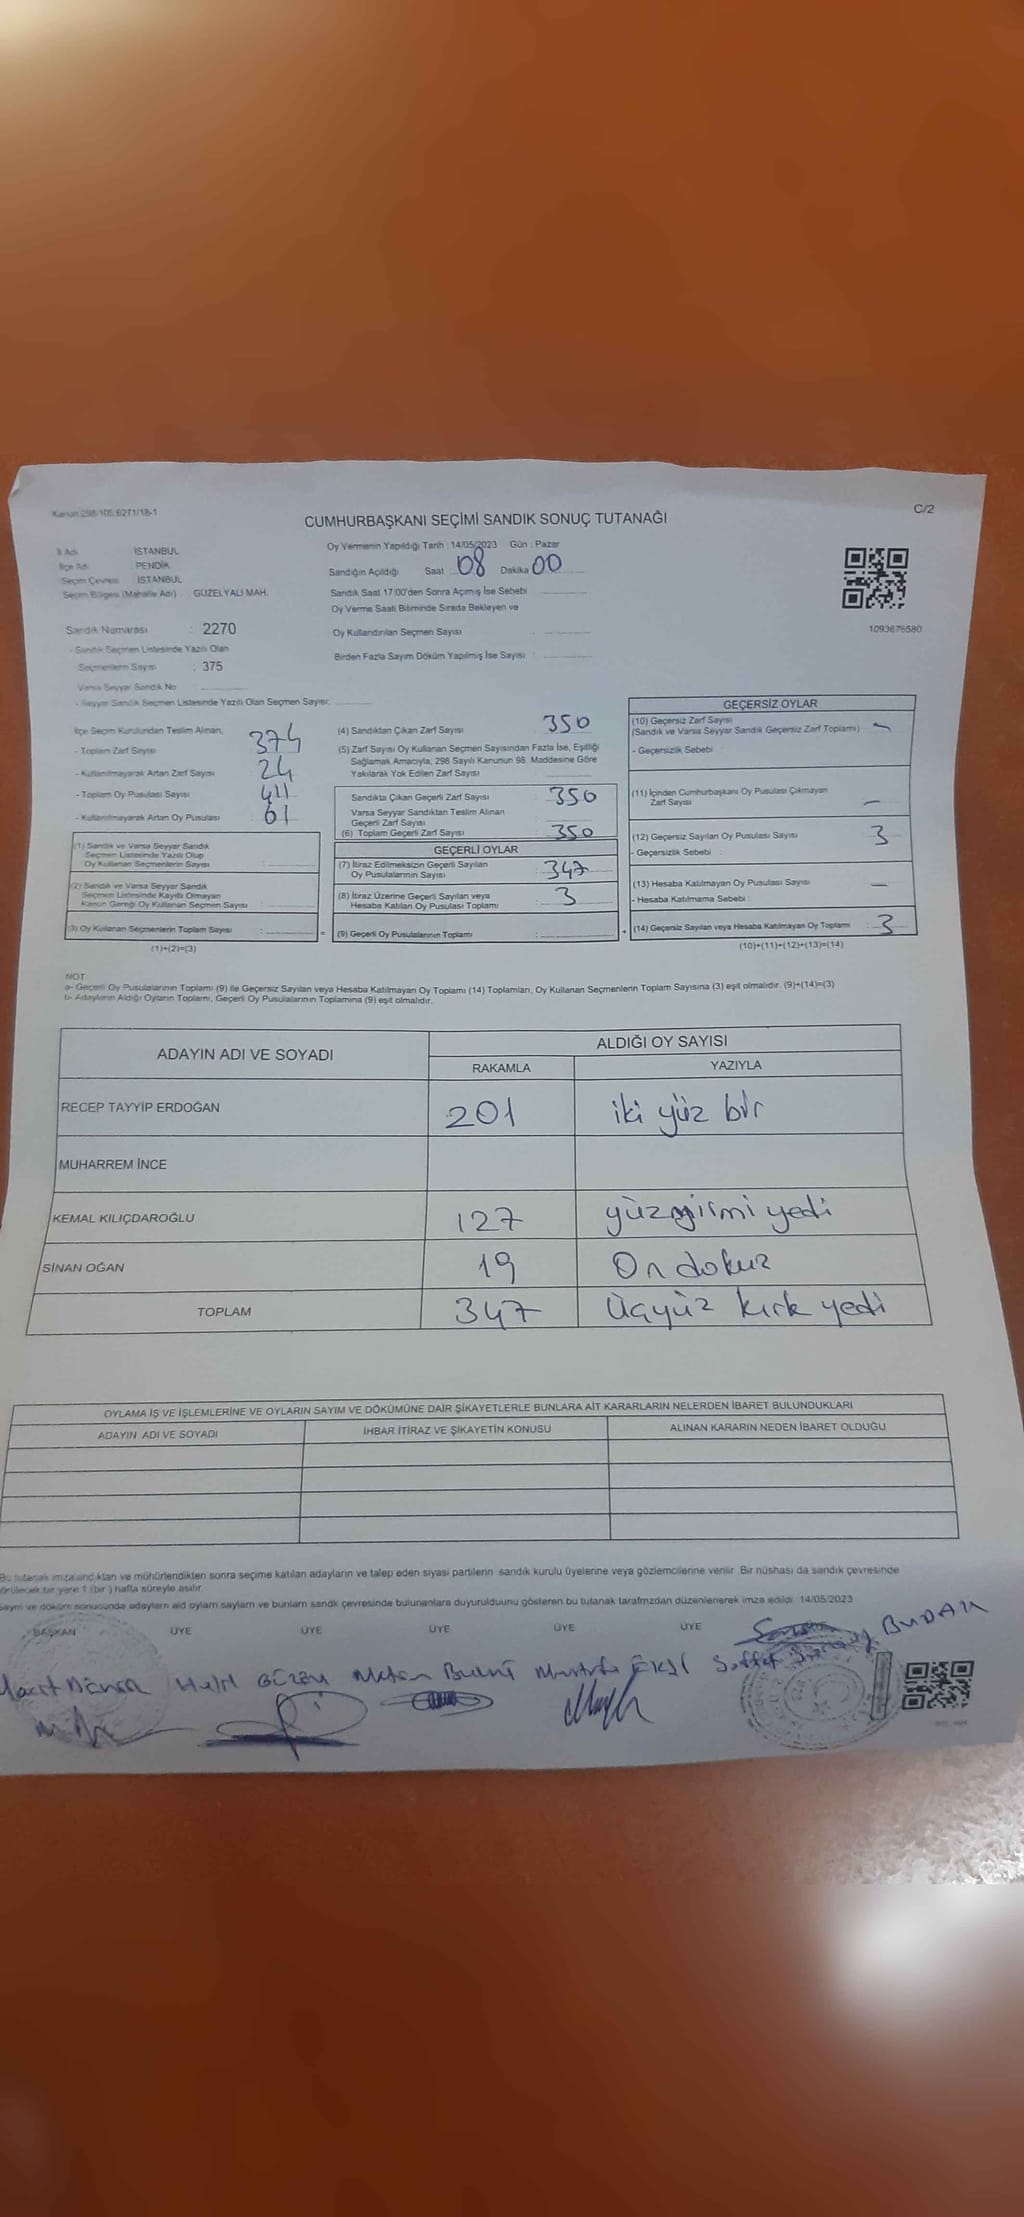 Kanun:298/105,6271/18-1
C/2
CUMHURBAŞKANI SEÇİMİ SANDIK SONUÇ TUTANAĞI
İl Adı İSTANBUL
İlçe Adı PENDİK
Seçim Çevresi İSTANBUL
Seçim Bölgesi (Mahalle Adı) GÜZELYALI MAH.
Sandık Numarası : 2270
- Sandık Seçmen Listesinde Yazılı Olan
Seçmenlerin Sayısı : 375
Varsa Seyyar Sandık No
- Seyyar Sandık Seçmen Listesinde Yazılı Olan Seçmen Sayısı:
Oy Vermenin Yapıldığı Tarih : 14/05/2023 Gün : Pazar
Sandığın Açıldığı Saat 08 Dakika 00
Sandık Saat 17:00'den Sonra Açımış İse Sebebi
Oy Verme Saati Bitiminde Sırada Bekleyen ve
Oy Kullandırılan Seçmen Sayısı
Birden Fazla Sayım Döküm Yapılmış İse Sayısı
1093676580
İlçe Seçim Kurulundan Teslim Alınan;
- Toplam Zarf Sayısı 374
- Kullanılmayarak Artan Zarf Sayısı 24
- Toplam Oy Pusulası Sayısı 411
- Kullanılmayarak Artan Oy Pusulası 61
(1) Sandık ve Varsa Seyyar Sandık
Seçmen Listesinde Yazılı Olup
Oy Kullanan Seçmenlerin Sayısı
(2) Sandık ve Varsa Seyyar Sandık
Seçmen Listesinde Kayıtlı Olmayan
Kanun Gereği Oy Kullanan Seçmen Sayısı
(3) Oy Kullanan Seçmenlerin Toplam Sayısı :
(1)+(2)=(3)
(4) Sandıktan Çıkan Zarf Sayısı 350
(5) Zarf Sayısı Oy Kullanan Seçmen Sayısından Fazla İse, Eşitliği
Sağlamak Amacıyla, 298 Sayılı Kanunun 98. Maddesine Göre
Yakılarak Yok Edilen Zarf Sayısı
Sandıkta Çıkan Geçerli Zarf Sayısı 350
Varsa Seyyar Sandıktan Teslim Alınan
Geçerli Zarf Sayısı
(6) Toplam Geçerli Zarf Sayısı 350
GEÇERLİ OYLAR
(7) İtiraz Edilmeksizin Geçerli Sayılan
Oy Pusulalarının Sayısı 347
(8) İtiraz Üzerine Geçerli Sayılan veya
Hesaba Katılan Oy Pusulası Toplamı 3
(9) Geçerli Oy Pusulalarının Toplamı :
GEÇERSİZ OYLAR
(10) Geçersiz Zarf Sayısı
(Sandık ve Varsa Seyyar Sandık Geçersiz Zarf Toplamı) -
- Geçersizlik Sebebi
(11) İçinden Cumhurbaşkanı Oy Pusulası Çıkmayan
Zarf Sayısı -
(12) Geçersiz Sayılan Oy Pusulası Sayısı 3
- Geçersizlik Sebebi
(13) Hesaba Katılmayan Oy Pusulası Sayısı -
- Hesaba Katılmama Sebebi
(14) Geçersiz Sayılan veya Hesaba Katılmayan Oy Toplamı : 3
(10)+(11)+(12)+(13)=(14)
NOT:
a- Geçerli Oy Pusulalarının Toplamı (9) ile Geçersiz Sayılan veya Hesaba Katılmayan Oy Toplamı (14) Toplamları, Oy Kullanan Seçmenlerin Toplam Sayısına (3) eşit olmalıdır. (9)+(14)=(3)
b- Adayların Aldığı Oyların Toplamı, Geçerli Oy Pusulalarının Toplamına (9) eşit olmalıdır.
ADAYIN ADI VE SOYADI ALDIĞI OY SAYISI
RAKAMLA YAZIYLA
RECEP TAYYİP ERDOĞAN 201 iki yüz bir
MUHARREM İNCE
KEMAL KILIÇDAROĞLU 127 yüzyirmi yedi
SİNAN OĞAN 19 On dokuz
TOPLAM 347 Üçyüz kırk yedi
OYLAMA İŞ VE İŞLEMLERİNE VE OYLARIN SAYIM VE DÖKÜMÜNE DAİR ŞİKAYETLERLE BUNLARA AİT KARARLARIN NELERDEN İBARET BULUNDUKLARI
ADAYIN ADI VE SOYADI İHBAR İTİRAZ VE ŞİKAYETİN KONUSU ALINAN KARARIN NEDEN İBARET OLDUĞU
Bu tutanak imzalandıktan ve mühürlendikten sonra seçime katılan adayların ve talep eden siyasi partilerin sandık kurulu üyelerine veya gözlemcilerine verilir. Bir nüshası da sandık çevresinde
görülecek bir yere 1 (bir ) hafta süreyle asılır.
Sayım ve döküm sonucunda adayların ald oyların sayıları ve bunların sandk çevresinde bulunanlara duyurulduunu gösteren bu tutanak tarafmzdan düzenlenerek imza edildi. 14/05/2023
BAŞKAN ÜYE ÜYE ÜYE ÜYE ÜYE
Halil Metin Mustafa BUDAK